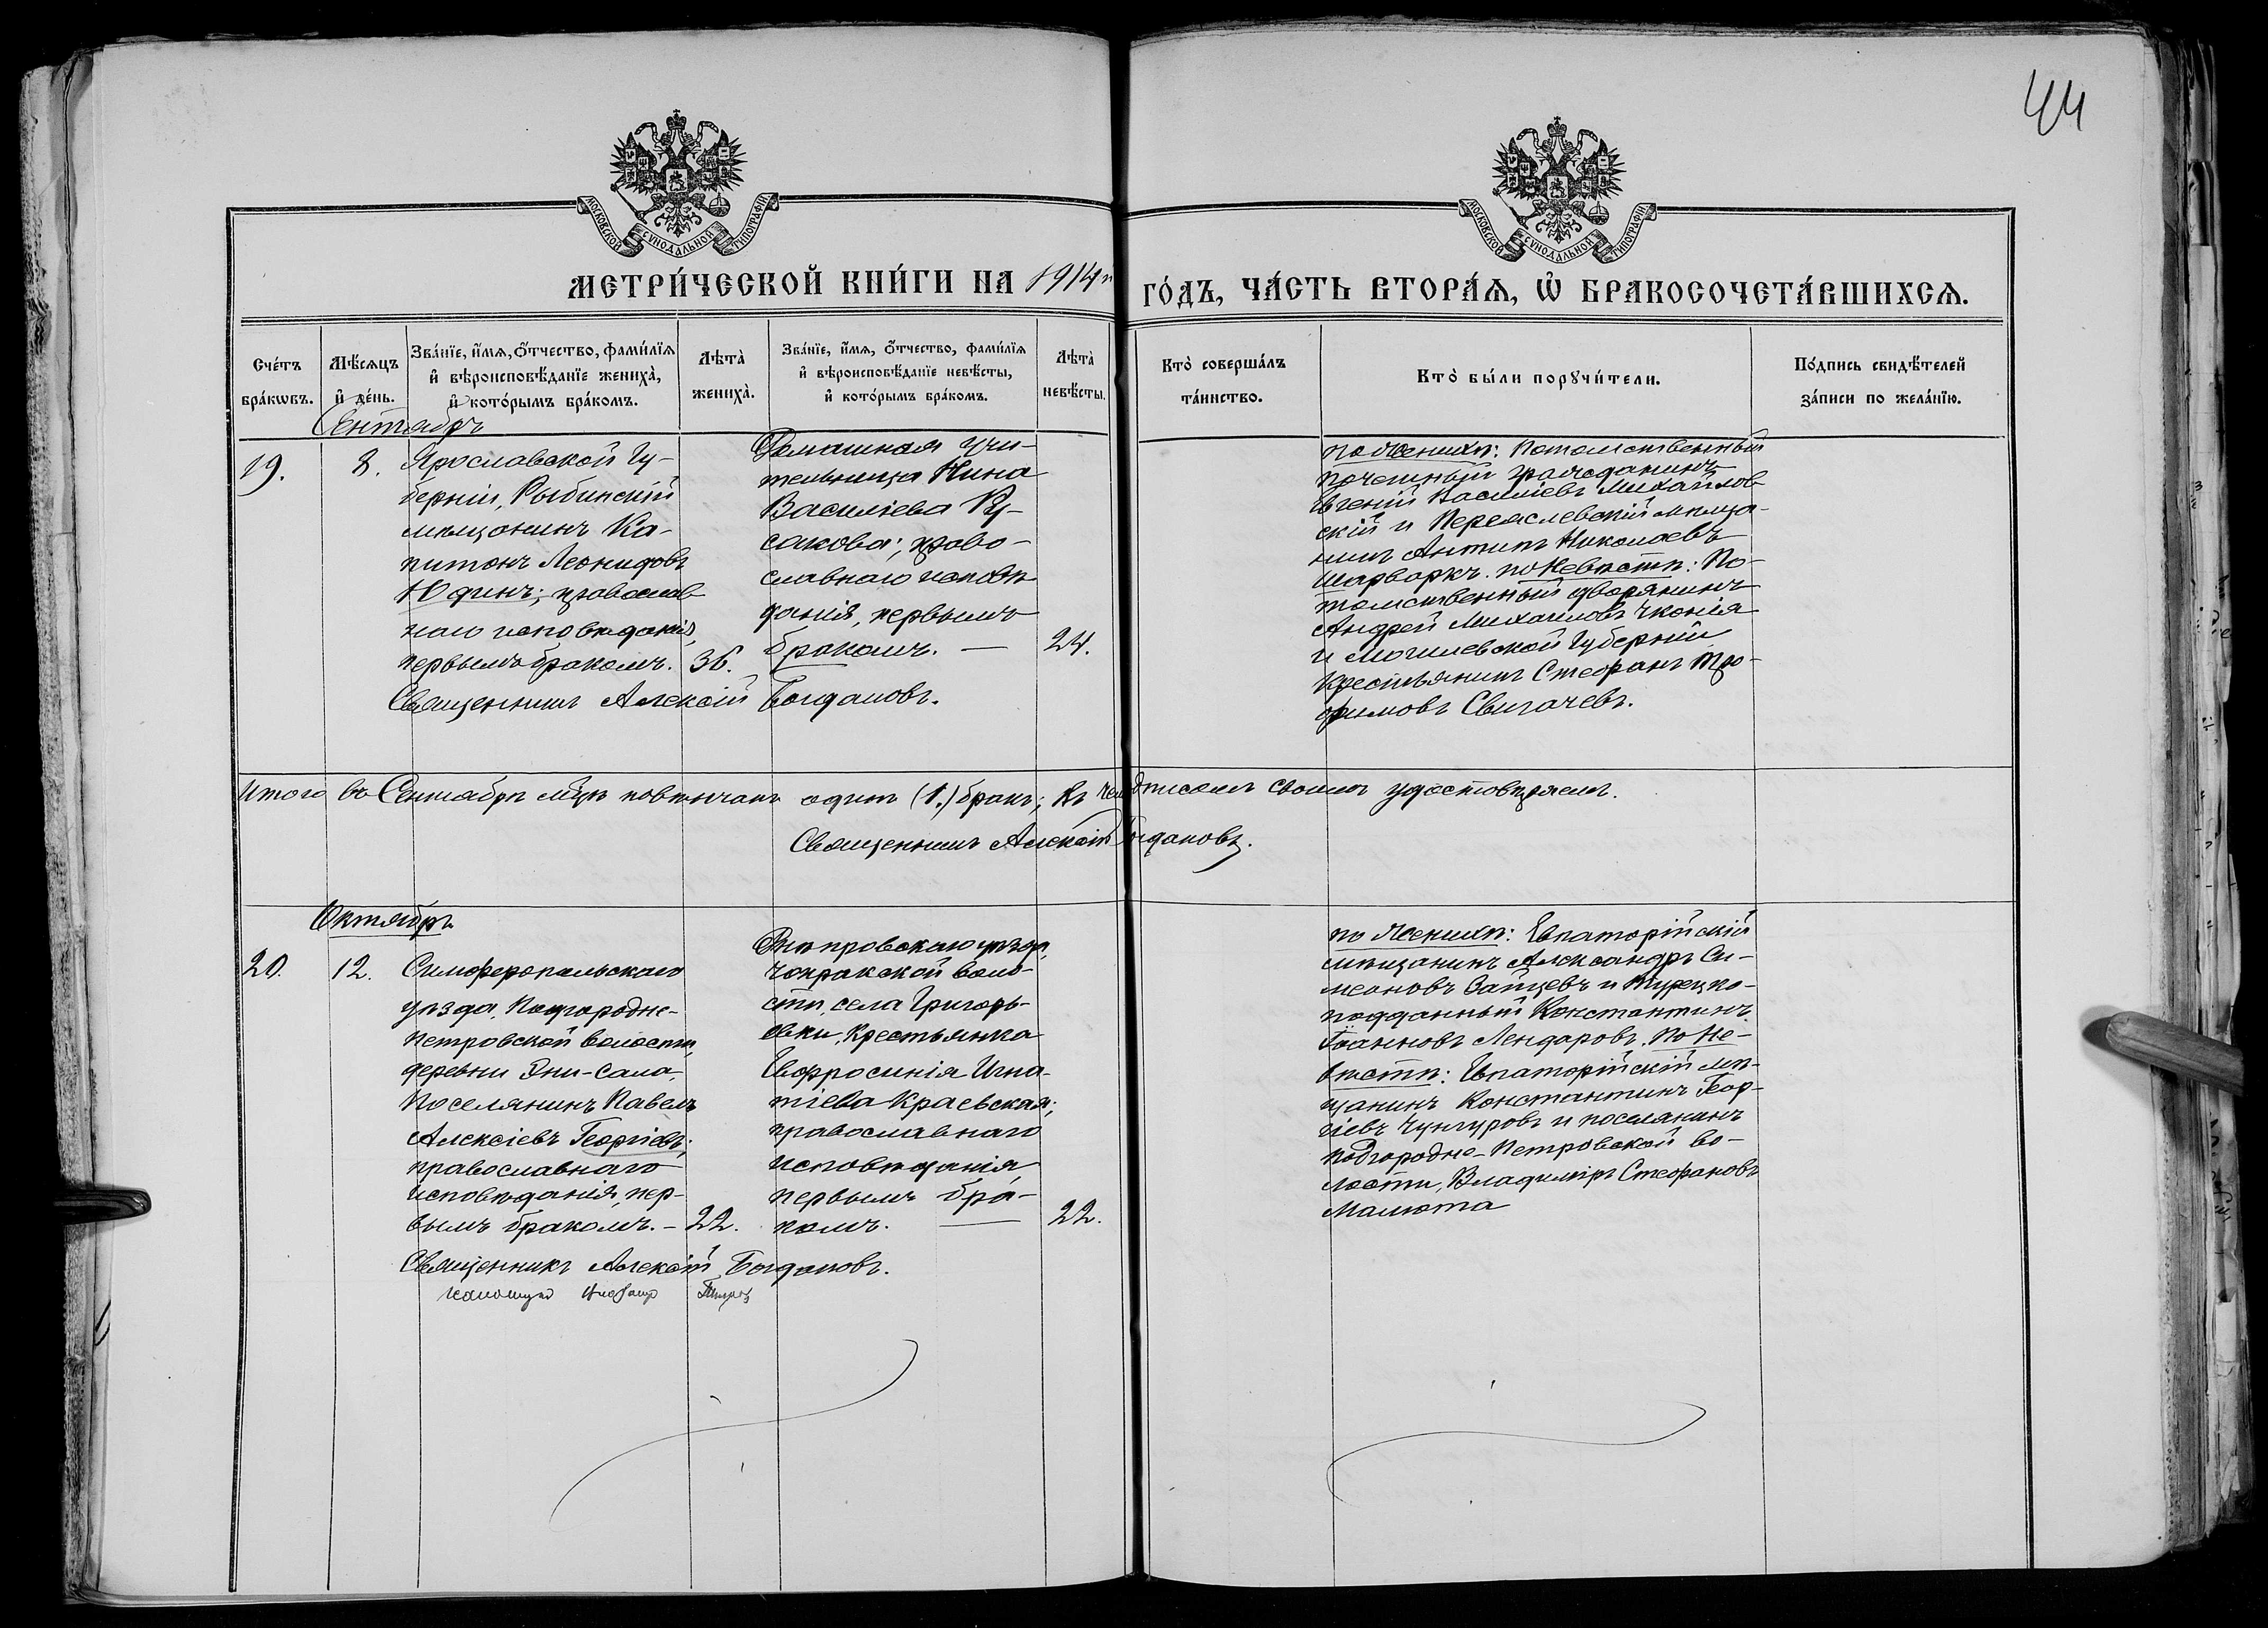 44
МОСКОВСКОЙ СѴНОДАЛЬНОЙ ТИПОГРАФІИ
МОСКОВСКОЙ СѴНОДАЛЬНОЙ ТИПОГРАФІИ
МЕТРИ́ЧЕСКОЙ КНИ́ГИ НА 1914й ГО́ДЪ, ЧА́СТЬ ВТОРА́Ѧ, Ѡ҆ БРАКОСОЧЕТА́ВШИХСѦ.
Сче́тъ
бра́кѡвъ.
Мѣ́сѧцъ
и҆ де́нь.
Зва́нїе, и҆́мѧ, ѻ҆́тчество, фами́лїѧ
и҆ вѣроисповѣ́данїе жениха̀,
и҆ кото́рымъ бра́комъ.
Лѣта̀
жениха̀.
Зва́нїе, и҆́мѧ, ѻ҆́тчество, фами́лїѧ
и҆ вѣроисповѣ́данїе невѣ́сты,
и҆ кото́рымъ бра́комъ.
Лѣта̀
невѣ́сты.
Кто̀ соверша́лъ
та́инство.
Кто̀ бы́ли порꙋчи́тели.
По́дпись свидѣ́телей
за́писи по жела́нїю.
Сентябрь
19.
8.
Ярославской Гу-
берніи, Рыбинскій
мѣщанинъ Ка-
питонъ Леонидовъ
Юдинъ; православ-
наго исповѣданія,
первымъ бракомъ.
36.
Домашняя учи-
тельница Нина
Василіева Ру-
сакова; право-
славнаго исповѣ-
данія, первымъ
бракомъ. —
24.
Священникъ Алексій Богдановъ.
по женихѣ: Потомственный
почетный гражданинъ
Евгеній Василіевъ Михайлов-
скій и Переяслевскій мѣща-
нинъ Антипъ Николаевъ
Шарваркъ. по Невѣстѣ: По-
томственный дворянинъ
Андрей Михаиловъ Чконія
и Могилевской Губерніи
крестьянинъ Стефанъ Тро-
фимовъ Свигачевъ.
Итого въ Сентябрѣ мцѣ повѣнчанъ одинъ (1.) бракъ; въ чемъ подписомъ своимъ удостовѣряемъ.
Священникъ Алексій Богдановъ.
Октябрь
20.
12.
Симферопольскаго
уѣзда, Подгородне-
Петровской волости,
деревни Эни-Сала,
поселянинъ Павелъ
Алексіевъ Георгіевъ;
православнаго
исповѣданія, пер-
вымъ бракомъ. –
22.
Днѣпровскаго уѣзда,
Чокракской воло-
сти, села Григорь-
евки, Крестьянка
Евфросинія Игна-
тіева Краевская;
православнаго
исповѣданія,
первымъ бра-
комъ. —
22.
Священникъ Алексій Богдановъ.
по женихѣ: Евпаторійскій
мѣщанинъ Александръ Си-
меоновъ Зайцевъ и Турецко-
подданный Константинъ
Іоанновъ Лендаровъ. По Не-
вѣстѣ: Евпаторійскій мѣ-
щанинъ Константинъ Геор-
гіевъ Чунгуровъ и поселянинъ
Подгородне-Петровской во-
лости, Владиміръ Стефановъ
Малюта